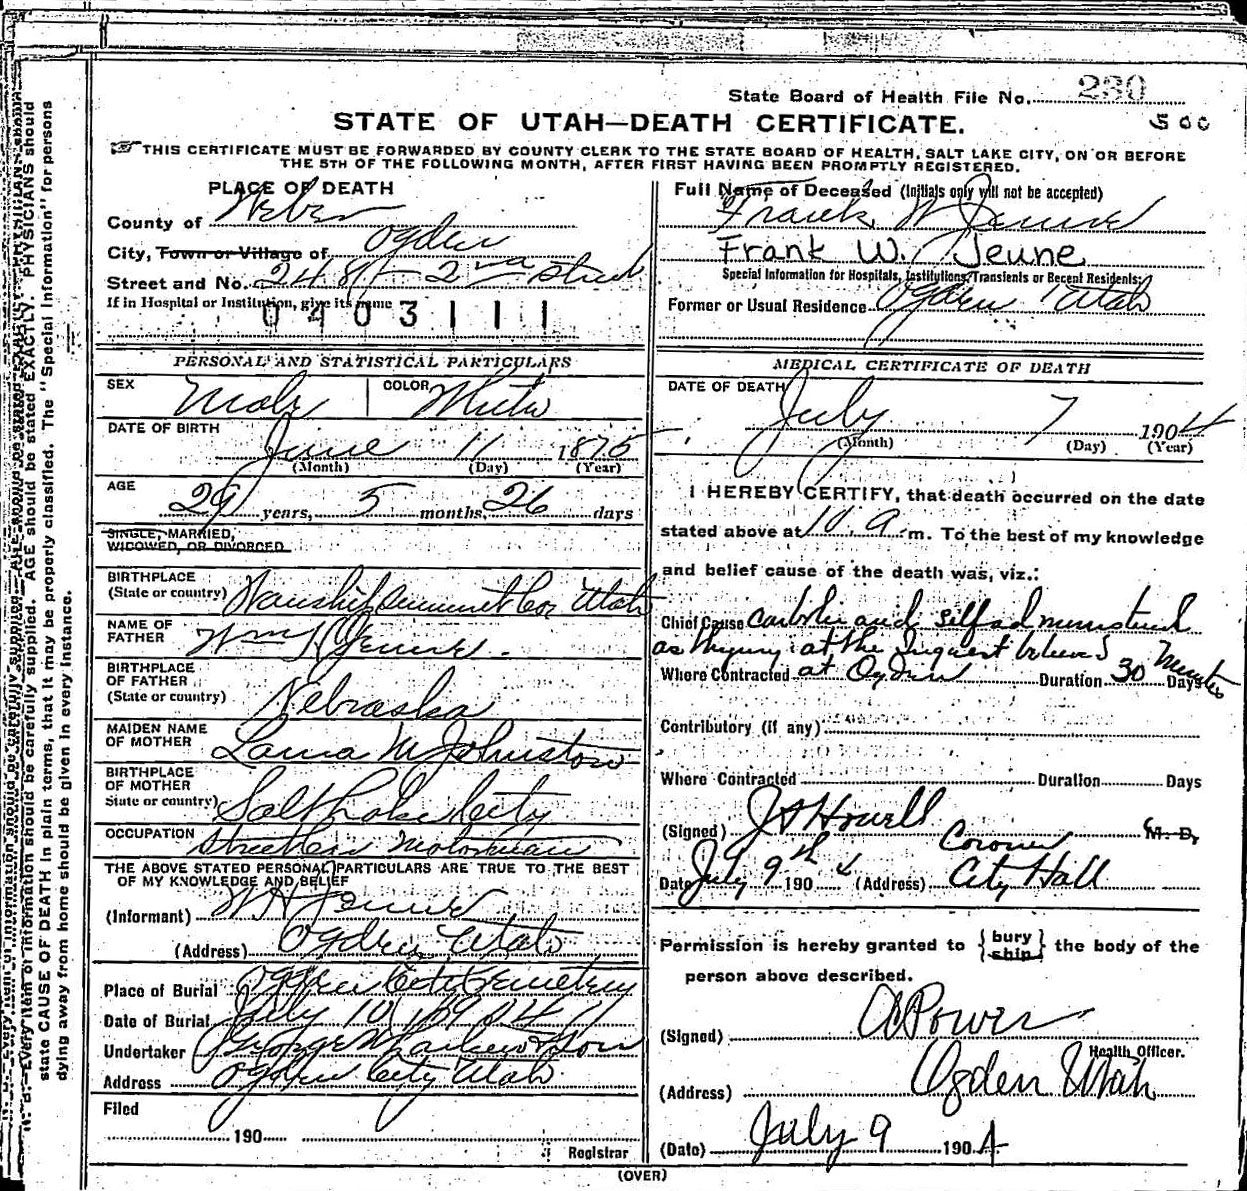 State Board of Health File No. 230
STATE OF UTAH—DEATH CERTIFICATE.
500
THIS CERTIFICATE MUST BE FORWARDED BY COUNTY CLERK TO THE STATE BOARD OF HEALTH, SALT LAKE CITY, ON OR BEFORE
THE 5TH OF THE FOLLOWING MONTH, AFTER FIRST HAVING BEEN PROMPTLY REGISTERED.
PLACE OF DEATH
County of Weber
City, Town or Village of Ogden
Street and No. 248 2nd street
If in Hospital or Institution, give its name
0403111
PERSONAL AND STATISTICAL PARTICULARS
SEX Male COLOR White
DATE OF BIRTH
June 11 1875
(Month) (Day) (Year)
AGE
29 years, 5 months, 26 days
SINGLE, MARRIED,
WIDOWED, OR DIVORCED
BIRTHPLACE
(State or country) Wanship Summit Co, Utah
NAME OF
FATHER Wm H Jeune
BIRTHPLACE
OF FATHER
(State or country) Nebraska
MAIDEN NAME
OF MOTHER Laura M Johnston
BIRTHPLACE
OF MOTHER
State or country) Salt Lake City
OCCUPATION Street Car Motorman
THE ABOVE STATED PERSONAL PARTICULARS ARE TRUE TO THE BEST
OF MY KNOWLEDGE AND BELIEF
(Informant) W H Jeune
(Address) Ogden Utah
Place of Burial Ogden City Cemetery
Date of Burial July 10, 1904
Undertaker George W Larkin & Son
Address Ogden City Utah
Filed
190
Registrar
Full Name of Deceased (Initials only will not be accepted)
Frank W Jeune
Frank W. Jeune
Special Information for Hospitals, Institutions, Transients or Recent Residents:
Former or Usual Residence Ogden Utah
MEDICAL CERTIFICATE OF DEATH
DATE OF DEATH
July 7 1904
(Month) (Day) (Year)
I HEREBY CERTIFY, that death occurred on the date
stated above at 10 a.m. To the best of my knowledge
and belief cause of the death was, viz.:
Chief Cause carbolic acid self administered
as the jury at the Inquest believed
Where Contracted at Ogden Duration 30 Minutes Days
Contributory (if any)
Where Contracted Duration Days
(Signed) J A Howell M. D.
Coroner
Date July 9th 190 4 (Address) City Hall
Permission is hereby granted to {bury ship} the body of the
person above described.
(Signed) A Power
Health Officer.
(Address) Ogden Utah
(Date) July 9 1904
(OVER)
state CAUSE OF DEATH in plain terms, that it may be properly classified. The "Special Information" for persons
dying away from home should be given in every instance.
N. B.—Every item of information should be carefully supplied. AGE should be stated EXACTLY. PHYSICIANS should